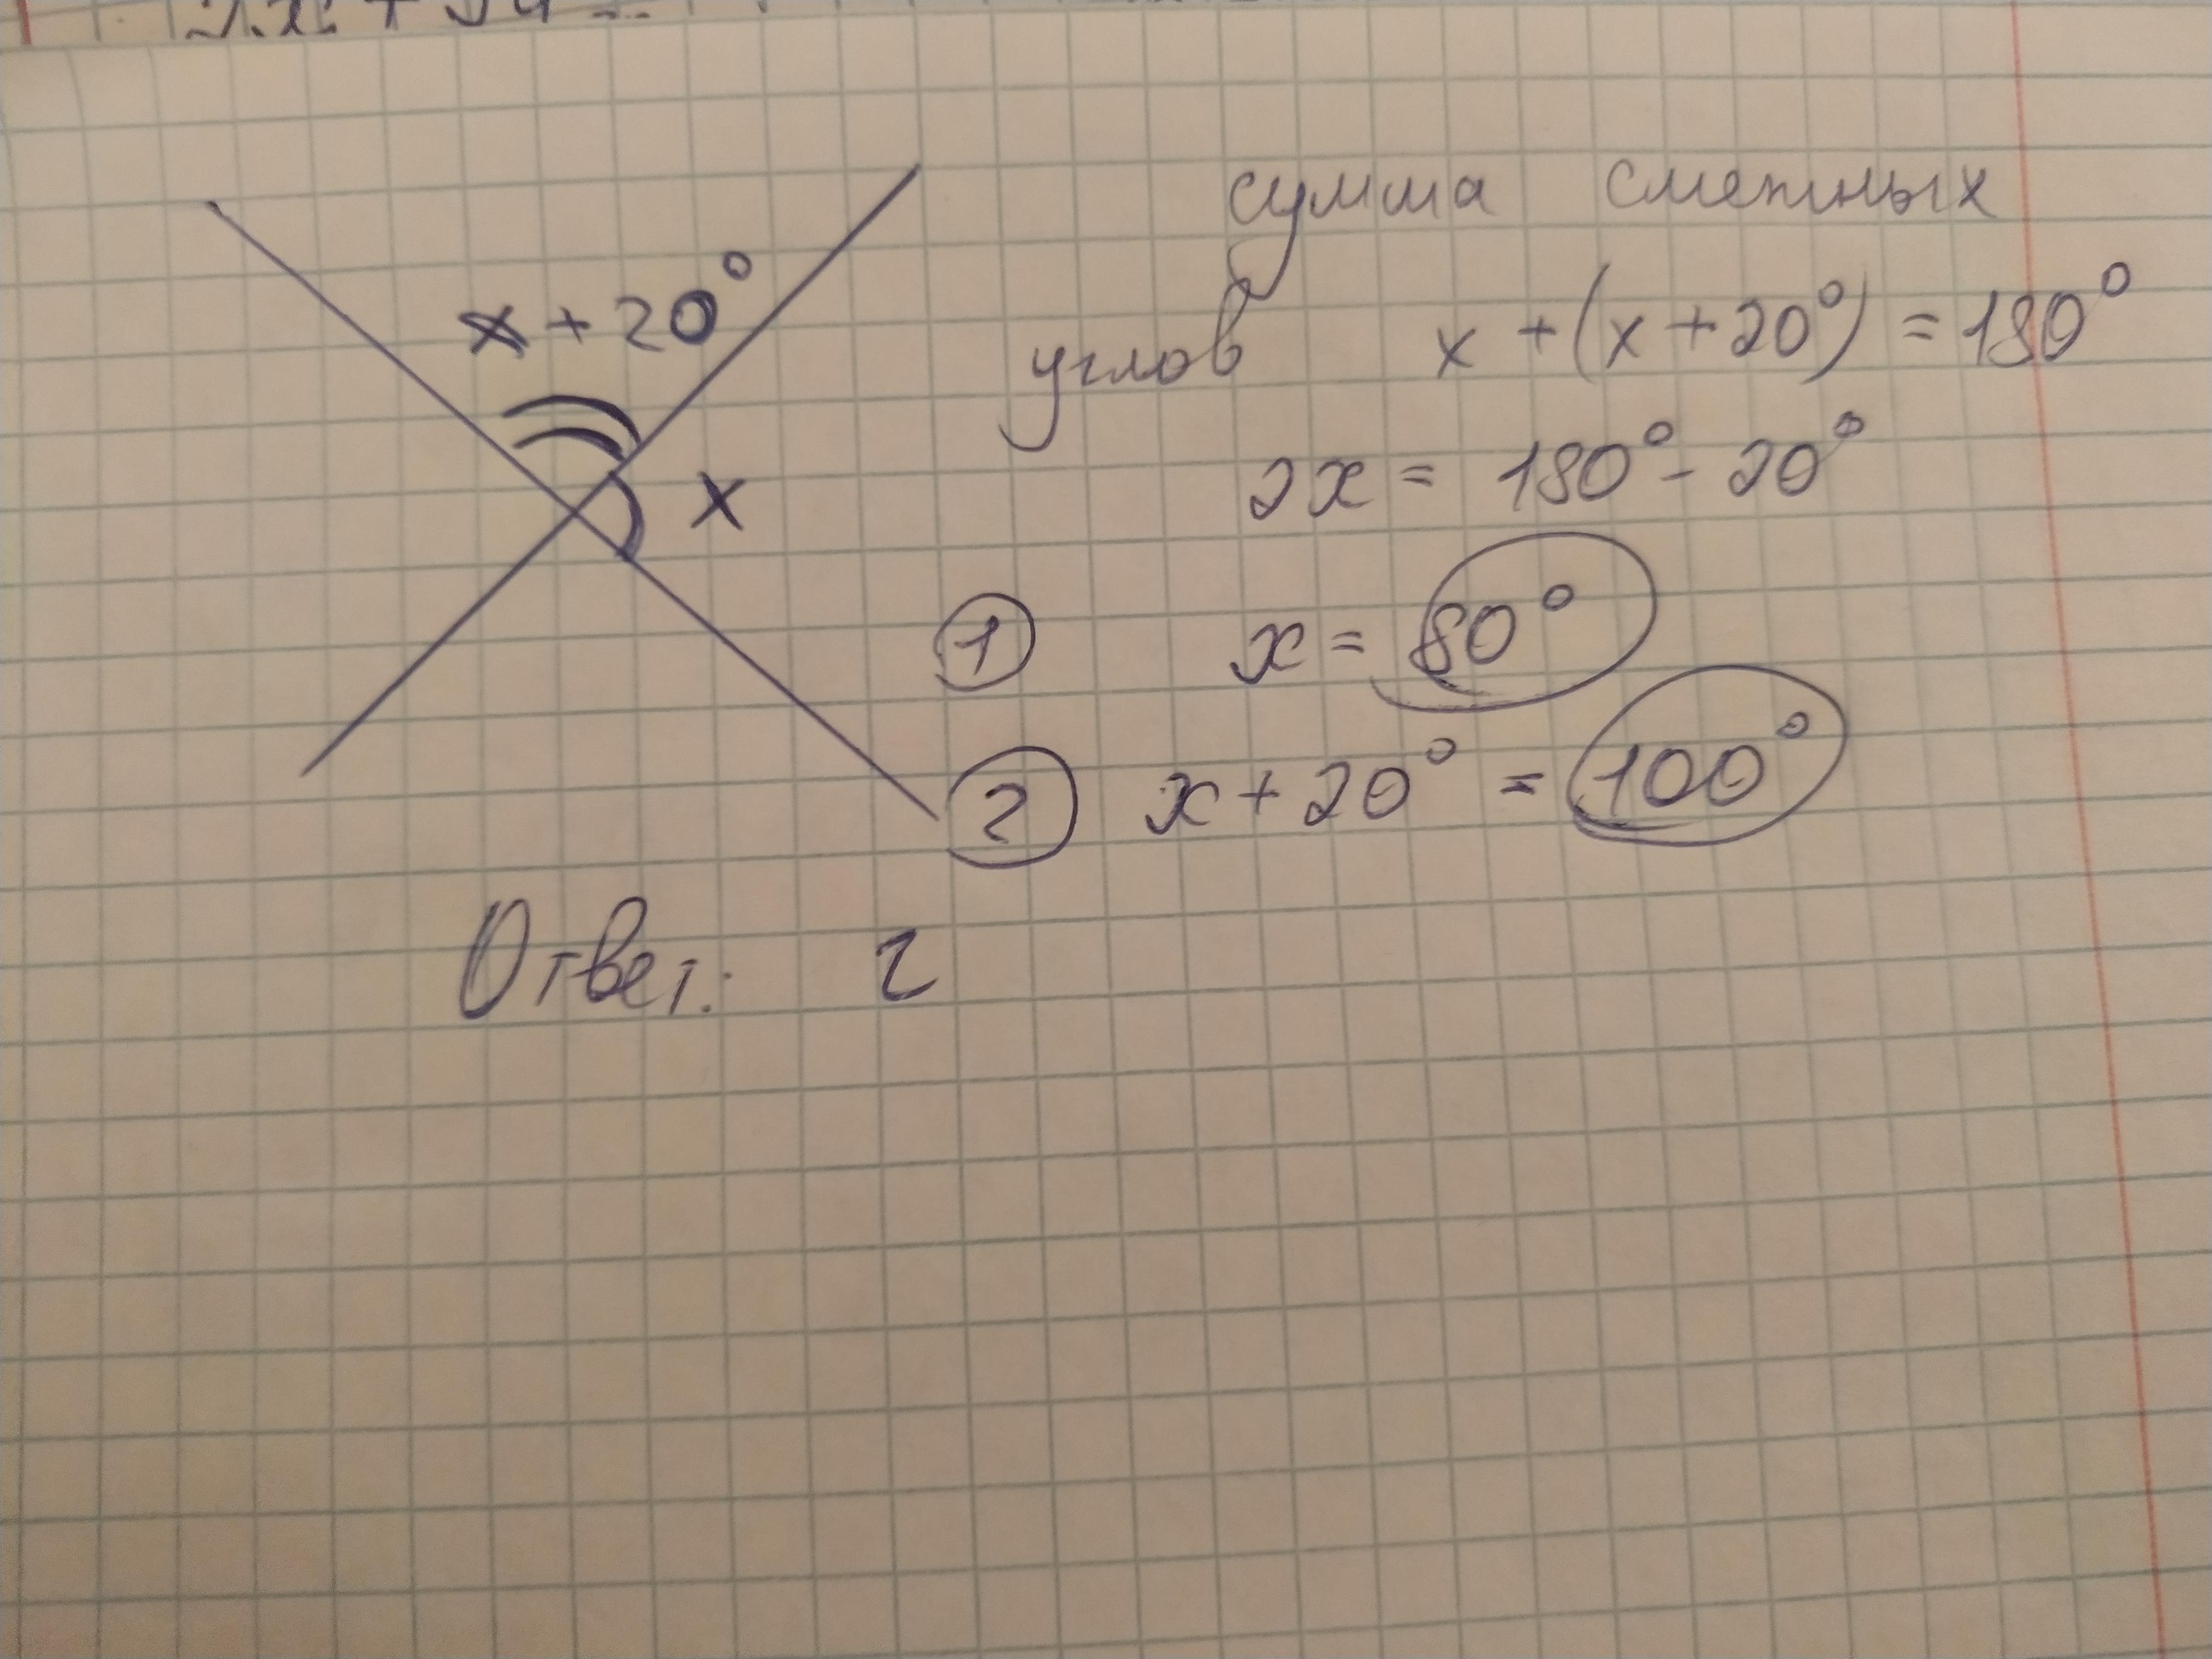 x + 20°
x
сумма смежных
углов x + (x + 20°) = 180°
2x = 180° - 20°
1 x = 80°
2 x + 20° = 100°
Ответ: 2